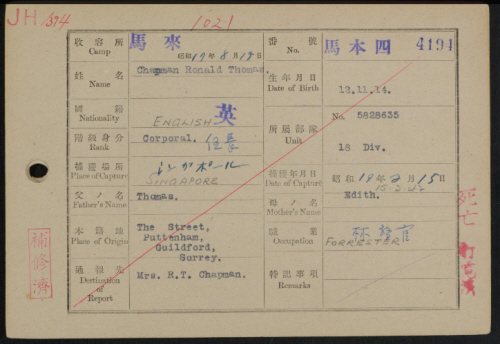 JH/374
1021
收容所 Camp 馬來 昭和17年8月15日
番號 No. 馬本四 4194
姓名 Name Chapman Ronald Thomas.
生年月日 Date of Birth 12.11.14.
國籍 Nationality ENGLISH 英
階級身分 Rank Corporal. 伍長
所屬部隊 Unit No. 5828635
18 Div.
捕獲場所 Place of Capture シンガポール
SINGAPORE
捕獲年月日 Date of Capture 昭和17年2月15日
15-2-42
父ノ名 Father's Name Thomas.
母ノ名 Mother's Name Edith.
本籍地 Place of Origin The Street,
Puttenham,
Guildford,
Surrey.
職業 Occupation
FORRESTER
通報先 Destination of Report Mrs. R.T. Chapman.
特記事項 Remarks
死亡
補修濟